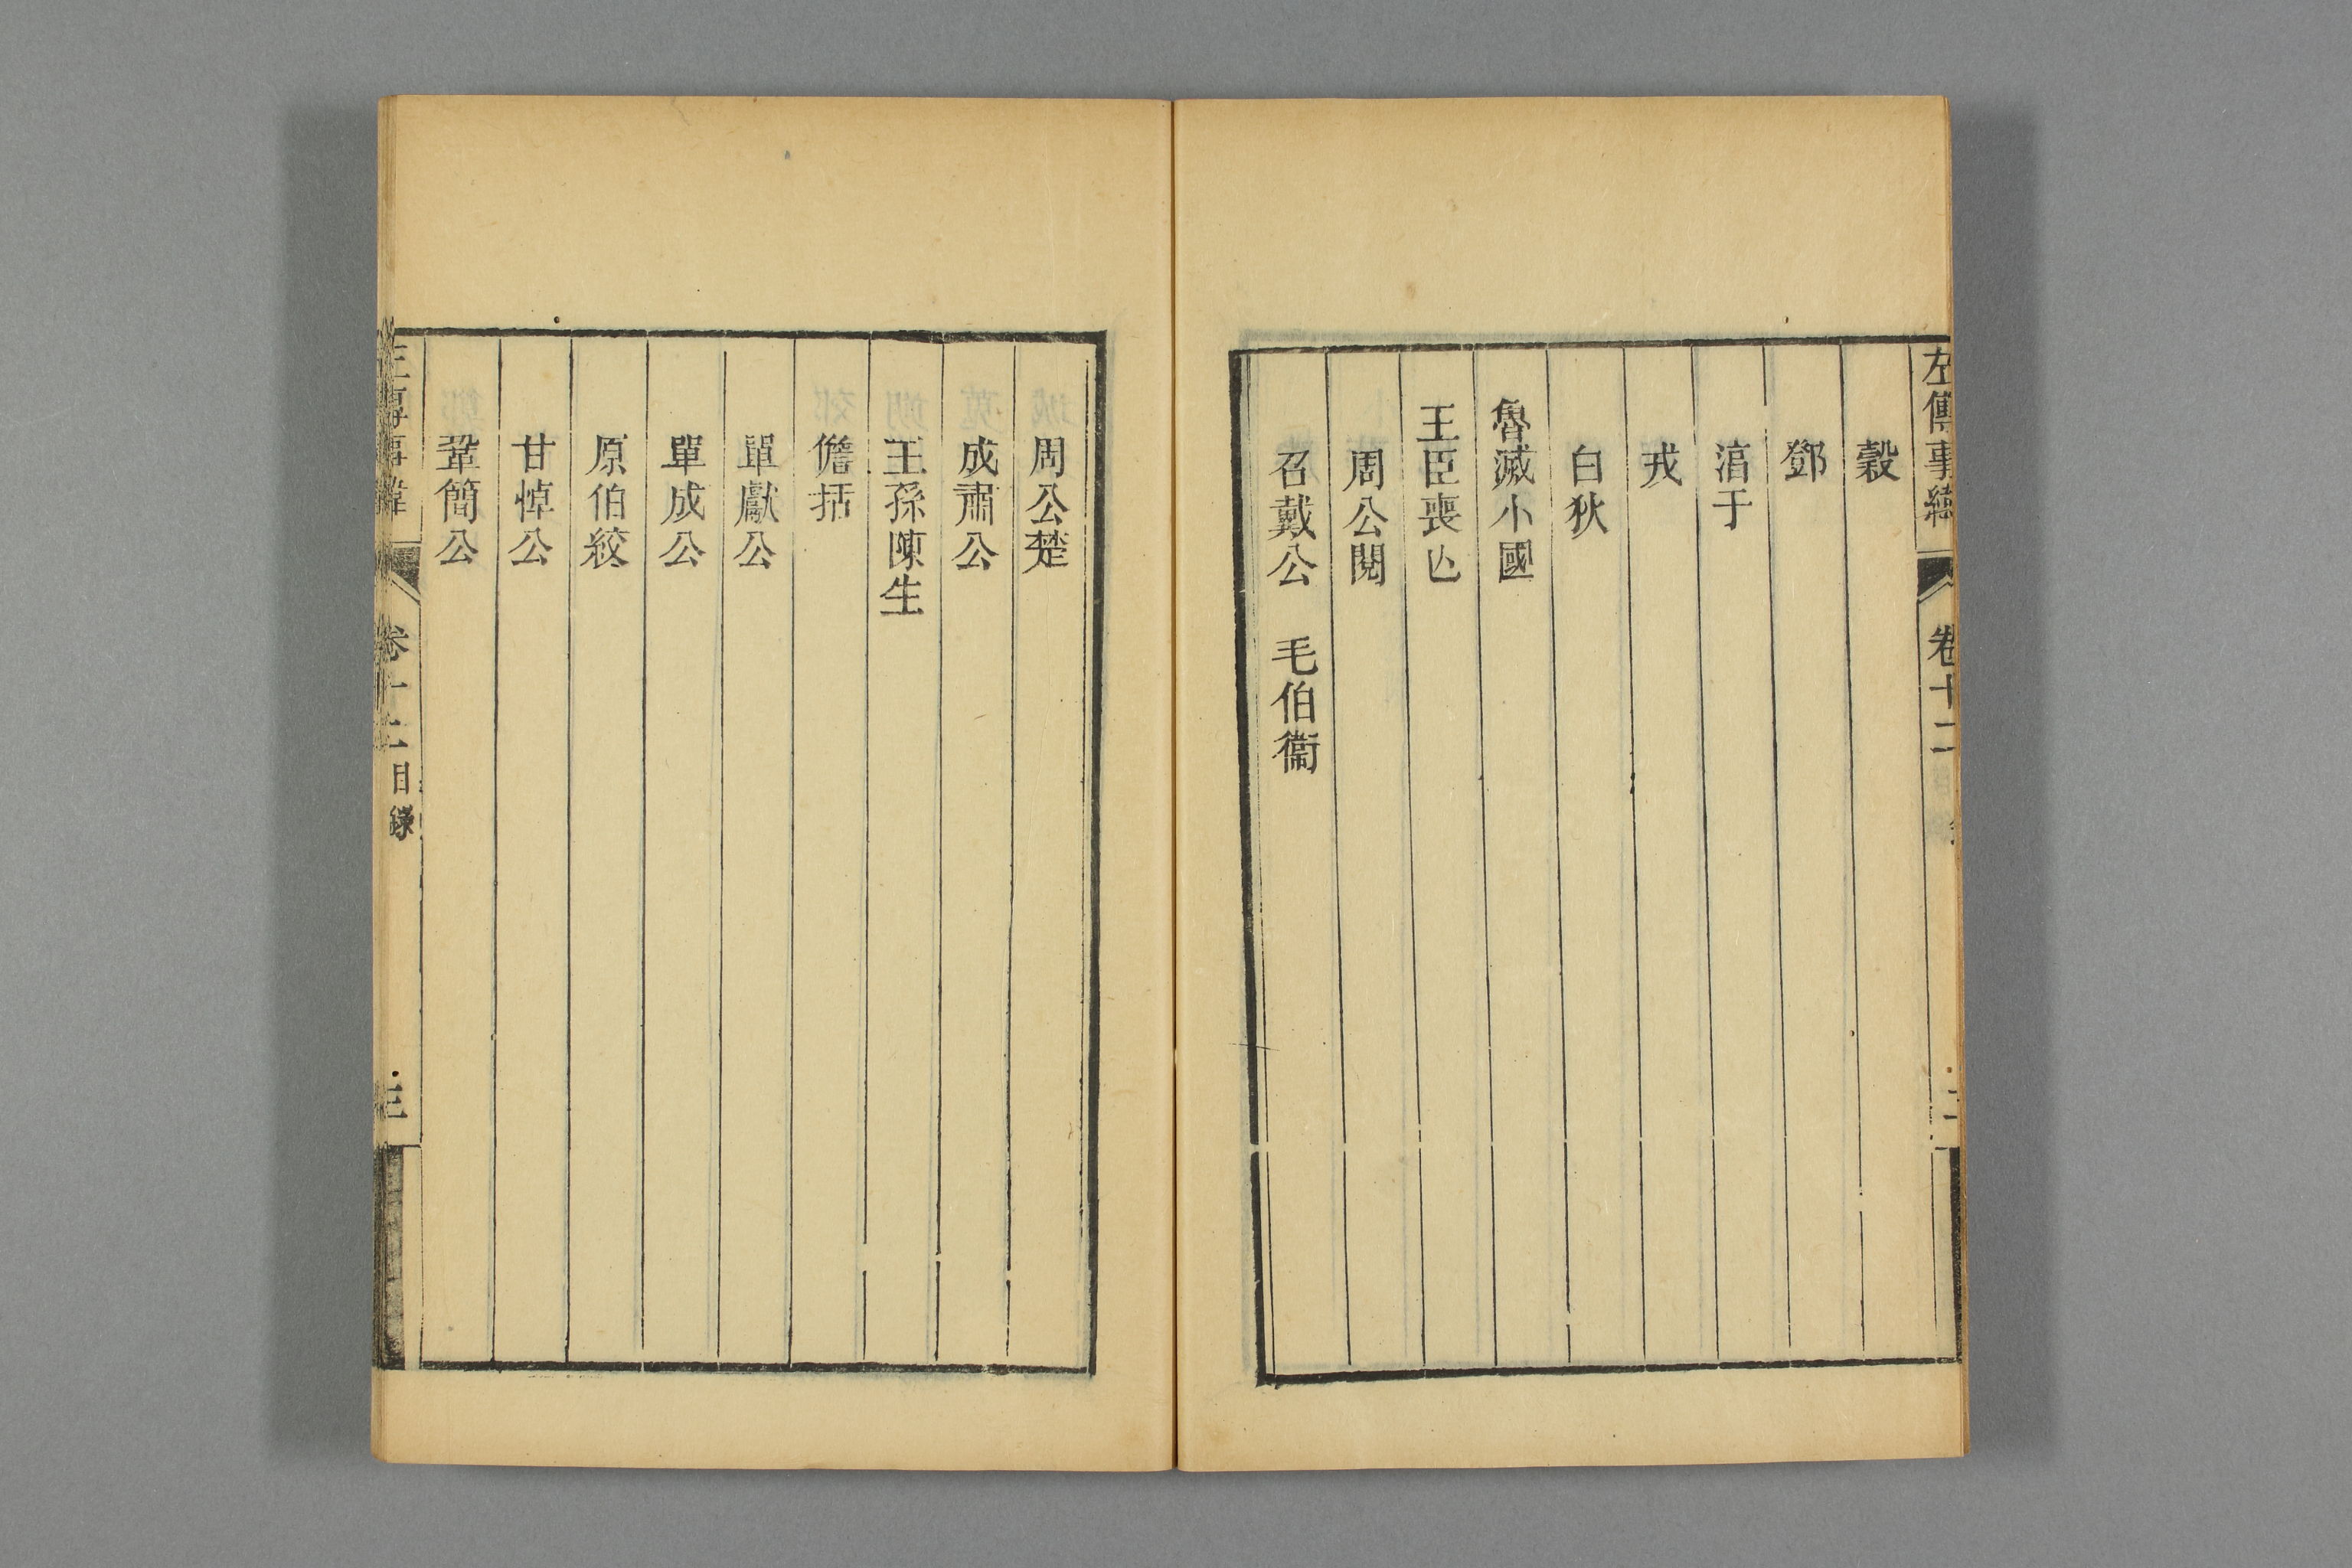 左傳事緯 卷十二
穀
鄧
湻于
戎
白狄
魯滅小國
王臣喪亾
周公閱
召戴公 毛伯衞
周公楚
成肅公
王孫陳生
儋括
單獻公
單成公
原伯絞
甘悼公
鞏簡公
左傳事緯 卷十二目錄 三